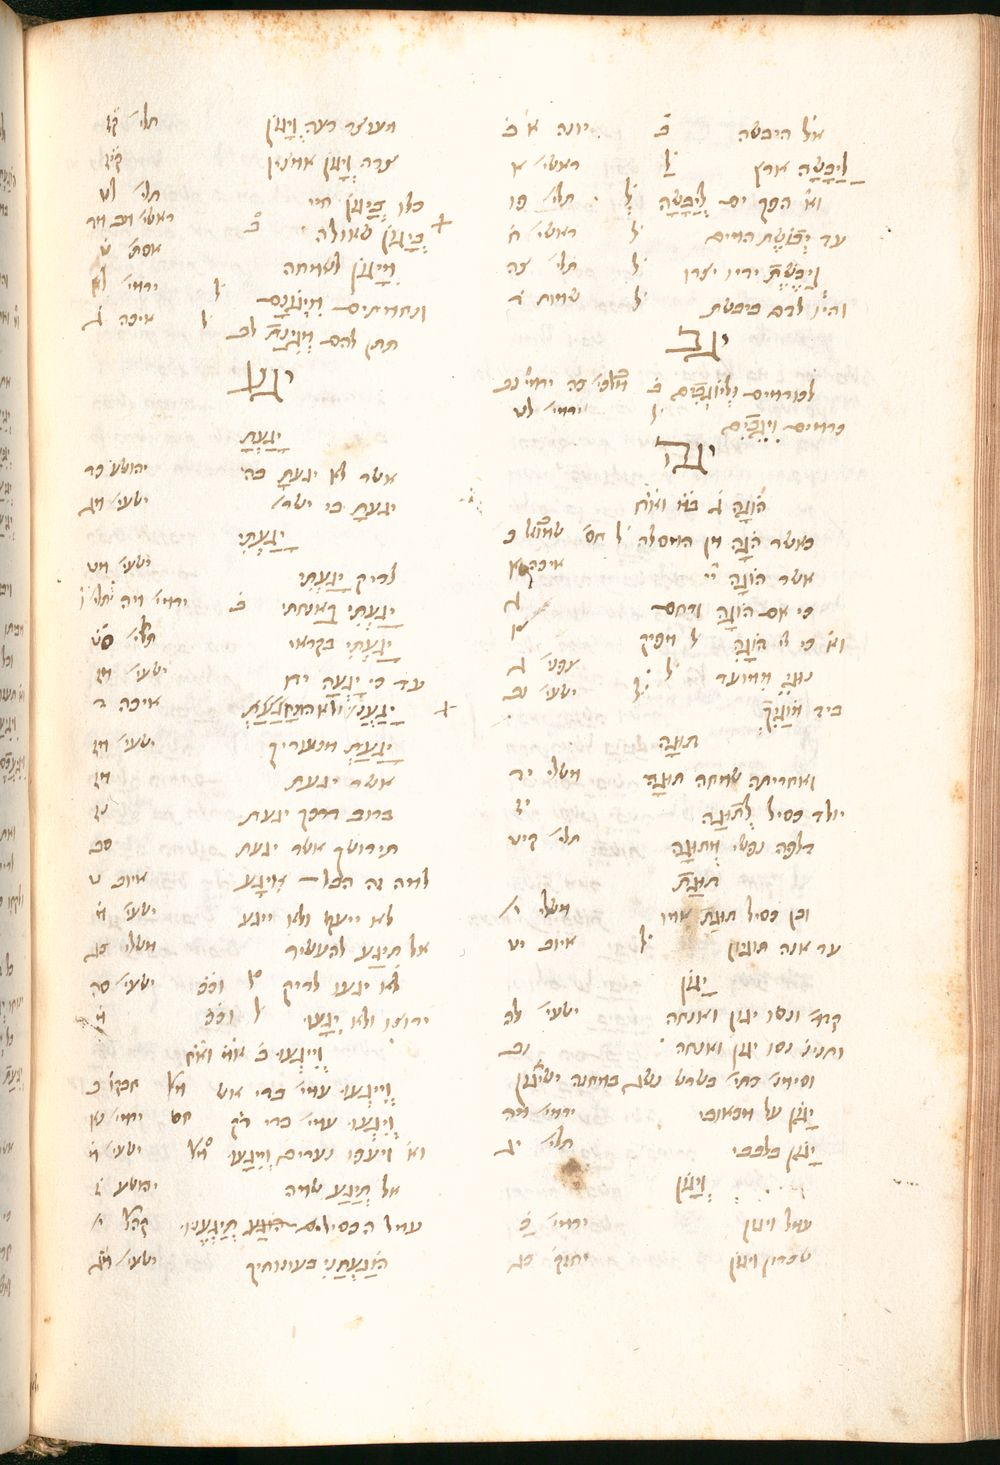 אל היבשה ב̇ יונה א ב
לַיַבָּשָׁה ארץ ל ראשי' א
וא' הפך ים לְיַבָּשָׁה ל תלי' סו
עד יְבֹשֶׁת המים ל ראשי' ח
וְיַבֶּשֶׁת ידיו יצרו ל תלי' צה
והיו לדם ביבשת ל שמות ד
יגב
לכורמים וּלְיוֹגְבִים ב̇ ירמי' נב
כרמים וִיגֵבִים ל ירמי' לט
יגה
הוֹגָה ג
כאשר הֹגָה מן המסלה ל חס' שמואל כ
אשר הוֹגָה יי' איכה א
כי אם הוֹגָה ורחם ג
וא' כי יי' הוֹגָהּ ל מפיק
נוּגֵי מִמועד ל צפני' ג
ביד מוֹגַיִךְ ל ישעי' נב
תוּגָה
ואחריתה שמחה תוּגָה משלי יד
יולד כסיל לְתוּגָה יז
דלפה נפשי מִתוּגָה תלי' קיט
תוּגַת
ובן כסיל תוּגַת אמו משלי י
עד אנה תוגיון ל איוב יט
יָגוֹן
ונסו יגון ואנחה ישעי' לה
נסו יגון ואנחה נב
יָגוֹן על מכאובי ירמי' מה
יָגוֹן בלבבי תלי' יג
וְיָגוֹן
עמל ויגון ירמי' כ
שכרון ויגון יחזק' כג
מעוצר רעה וְיָגוֹן תלי' קז
צרה וְיָגוֹן אמצא קיו
כלו בְיָגוֹן חיי תלי' לא
בְּיָגוֹן שאולה ב̇ ראשי' מב מד
מִיָּגוֹן לשמחה אסת' ט
ונחמתים מִיגוֹנָם ל ירמי' לא
תתן להם מְגִנַּת לב ל איכה ג
יגע
יָגַעְתָּ
אשר לא יגעתָ בה יהושע כד
יגעתָ בי ישר' ישעי' מג
יָגַעְתִּי
לריק יָגַעְתִּי ישעי' מט
יָגַעְתִּי בְאנחתי ב̇ ירמי' מה תלי' ו
יָגַעְתִּי בקראי תלי' סט
עד כי יָגְעָה ידו
יָגַעְנוּ ולא הונח איכה ה
יָגַעַתְּ מנעוריך ישעי' מז
אשר יגעת מז
ברוב דרכך יגעת נז
תירושך אשר יגעת סב
למה זה הבל אִיגָע איוב ט
לא ייעף ולא ייגע ישעי' מ
אל תיגַע להעשיר משלי כג
לא יגעו לריק ל ישעי' סה
ירוצו ולא יִגָעוּ ל מ
וְיִיגְעוּ ב̇
וְיִיגְעוּ עמי' בדי אש מל' חבקו' ב
וְיִגְעוּ עמי' בדי ריק חס' ירמי' נא
וא' ויעפו נערים וְיִגָעוּ ישעי' מ
אל תְיַגַע שמה יהושע ז
עמל הכסילים תְּיַגְּעֶנּוּ קהל' י
הוֹגַעְתַנִי בעונותיך ישעי' מג